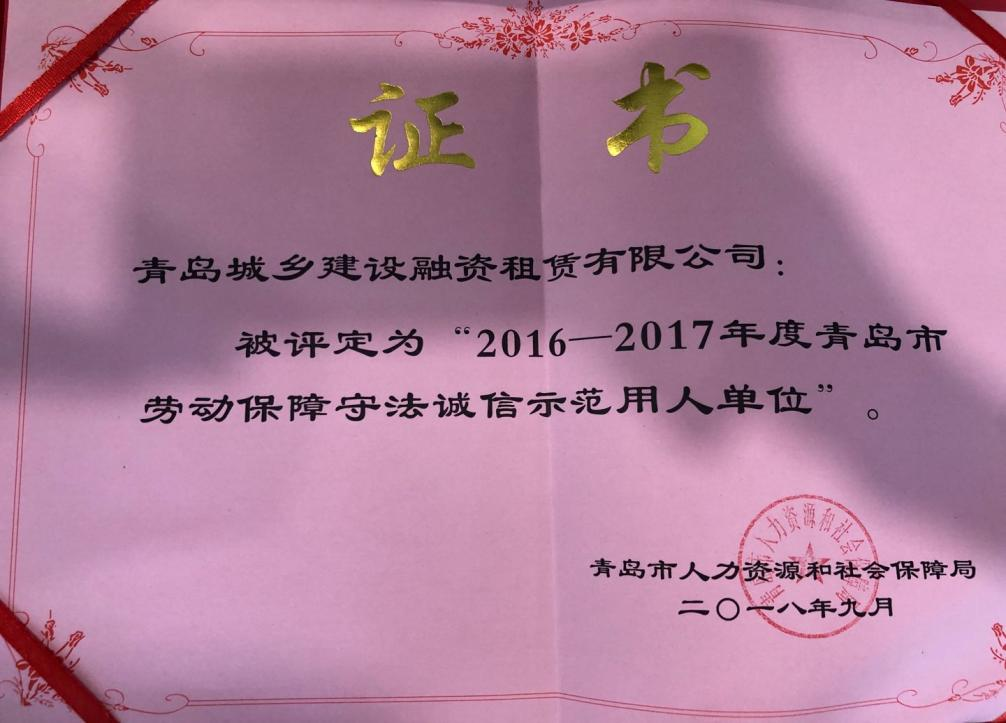 证书
青岛城乡建设融资租赁有限公司：
被评定为“2016—2017年度青岛市
劳动保障守法诚信示范用人单位”。
青岛市人力资源和社会保障局
青岛市人力资源和社会保障局
二〇一八年九月